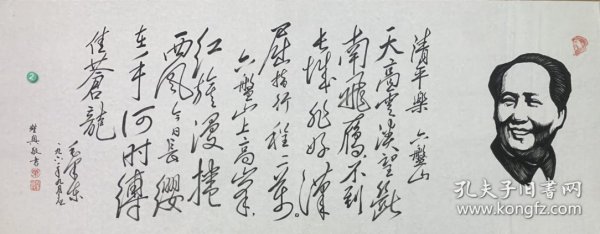 清平樂 六盤山
天高雲淡望斷
南飛雁不到
長城非好漢
屈指行程二萬
六盤山上高峰
紅旗漫捲
西風今日長纓
在手何時縛
住蒼龍
毛澤東
孔夫子旧书网
www.kongfz.com